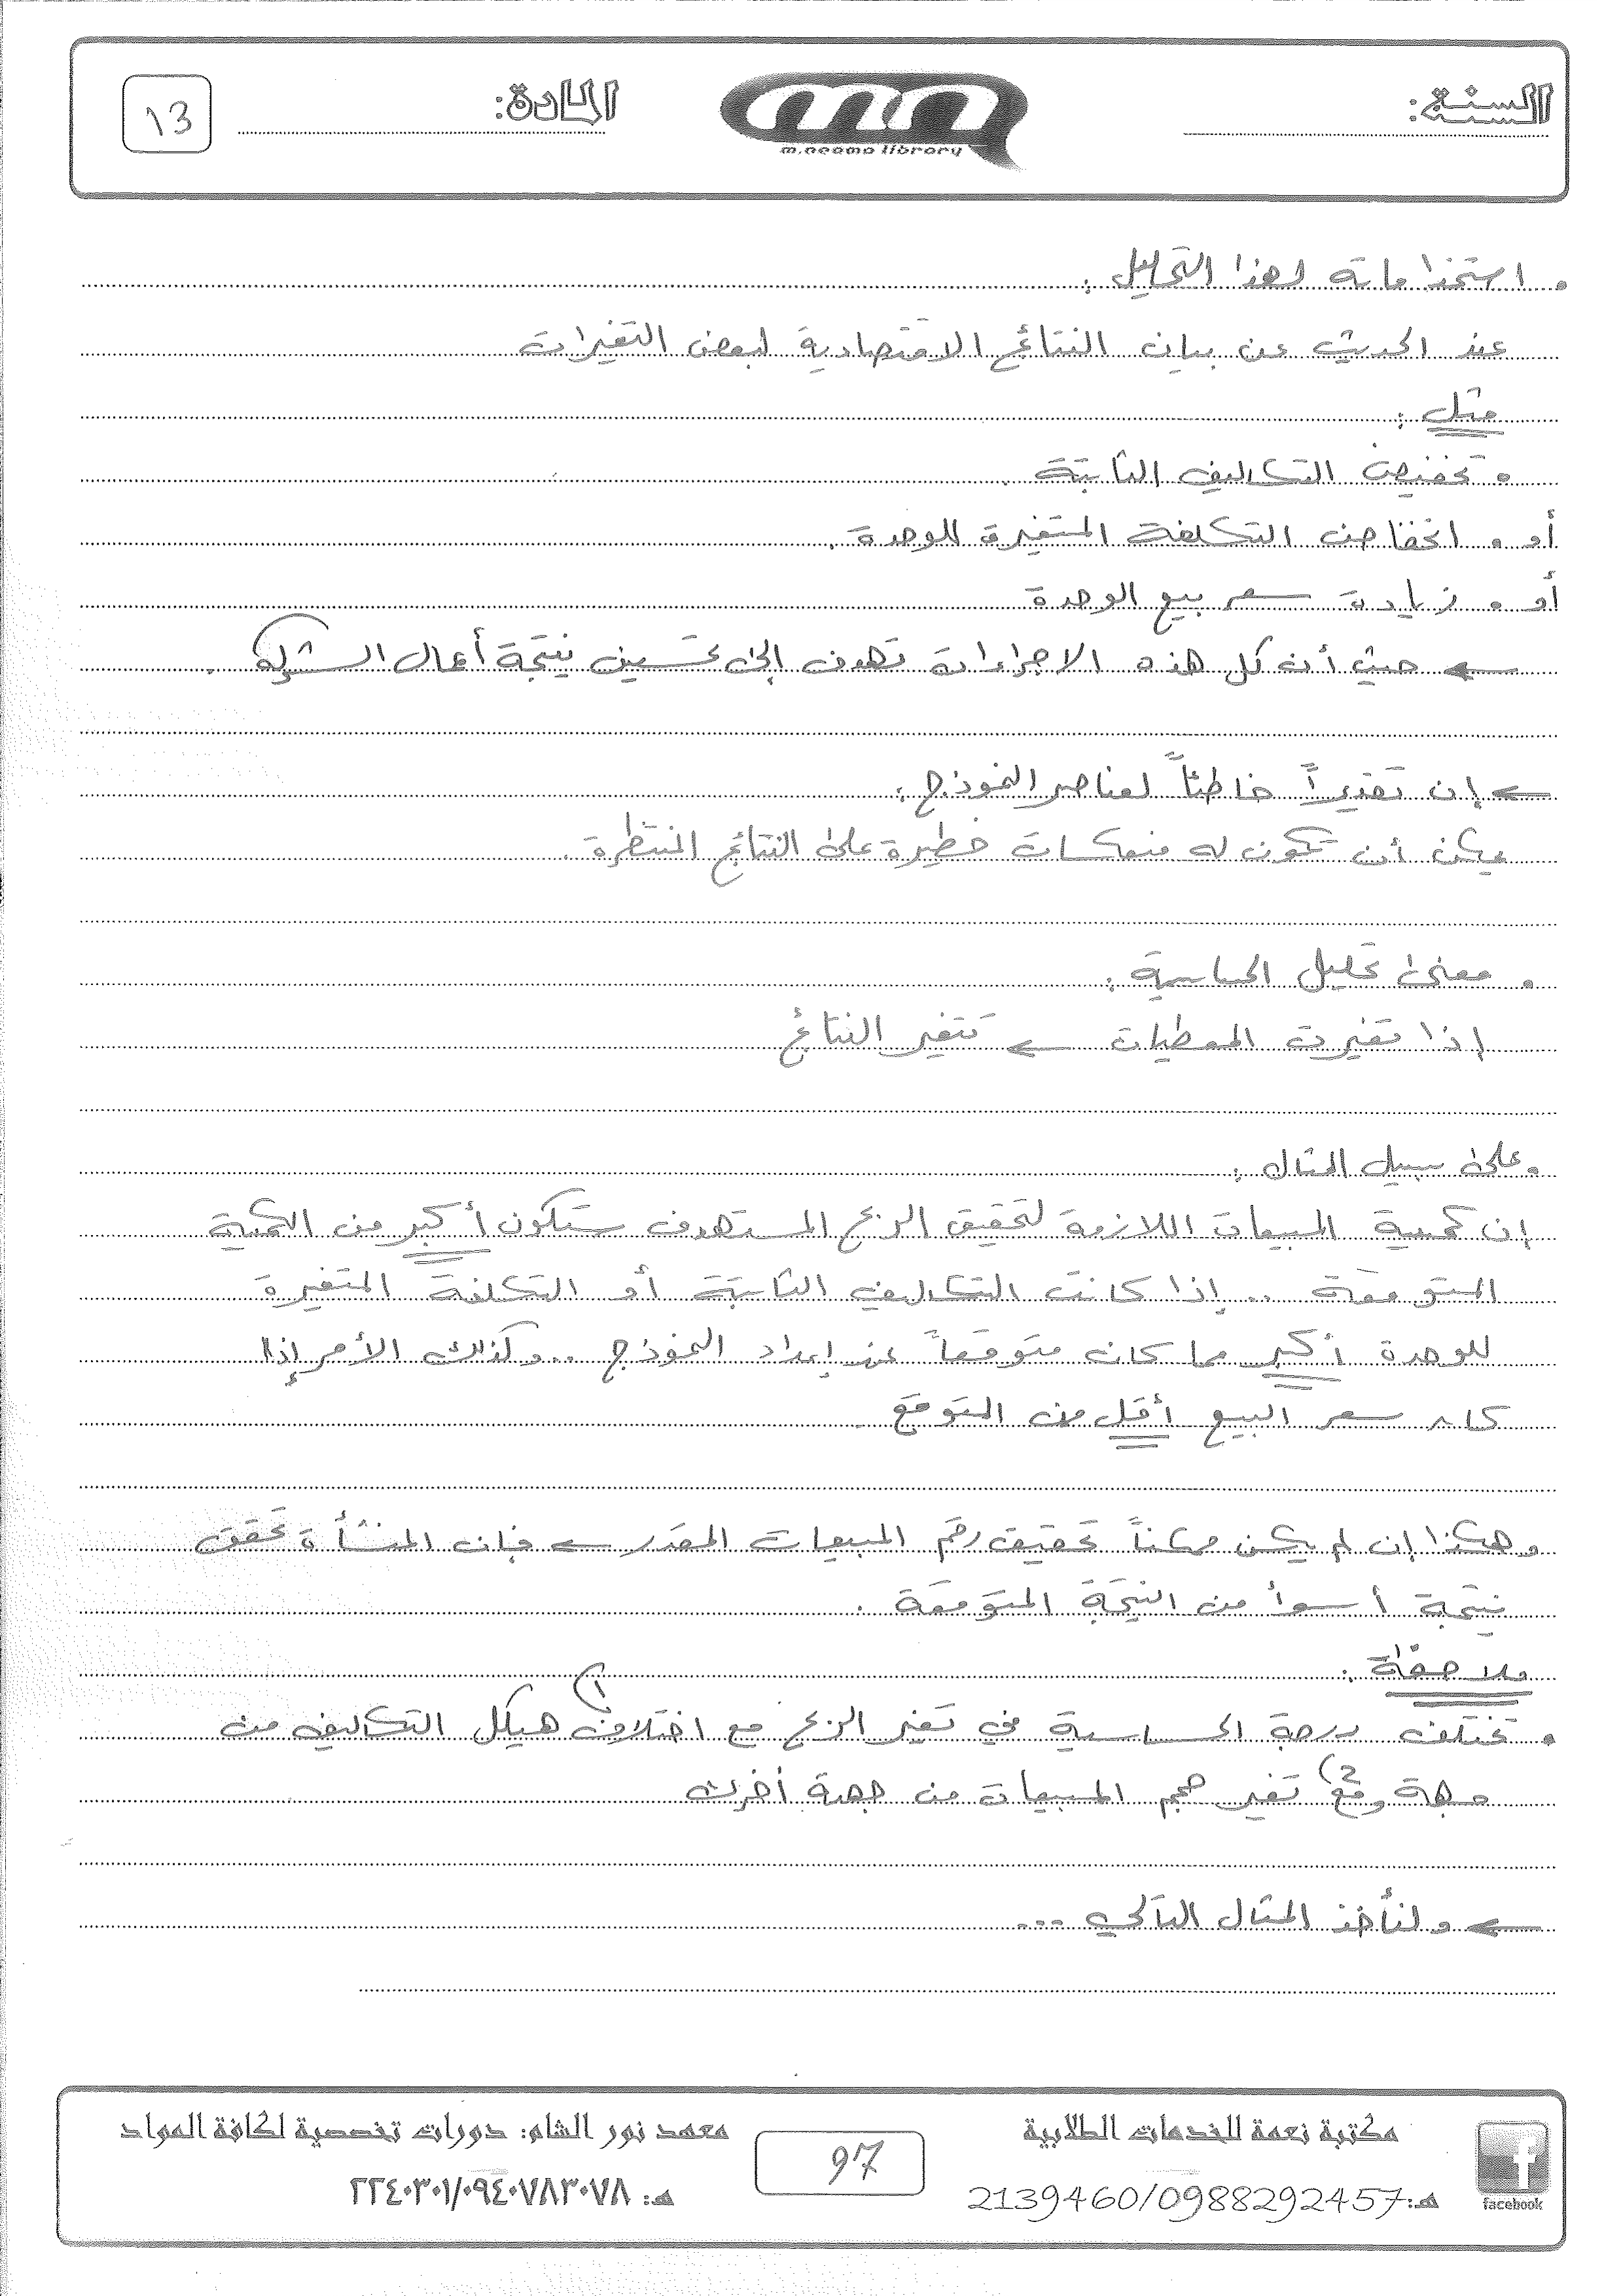 السنة:
m.neama library
المادة:
13
• استخداماته لهذا التحليل:
عند الحديث عن بيان النتائج الاقتصادية لبعض التغيرات
مثل:
• تخفيض التكاليف الثابتة
أو • انخفاض التكلفة المتغيرة للوحدة.
أو • زيادة سعر بيع الوحدة
← حيث أن كل هذه الاجراءات تهدف إلى تحسين نتيجة أعمال الشركة.
← إن تقديراً خاطئاً لعناصر النموذج:
يمكن أن تكون له منعكسات خطيرة على النتائج المنتظرة.
• معنى تحليل الحساسية:
إذا تغيرت المعطيات ← تتغير النتائج
• على سبيل المثال:
إن كمية المبيعات اللازمة لتحقيق الربح المستهدف ستكون أكبر من الكمية
المتوقعة .. إذا كانت التكاليف الثابتة أو التكلفة المتغيرة
للوحدة أكبر مما كان متوقعاً عند إعداد النموذج .. وكذلك الأمر إذا
كان سعر البيع أقل من المتوقع
وهكذا إن لم يكن ممكناً تحقيق رقم المبيعات المقدر ← فإن المنشأة تحقق
نتيجة أسوأ من النتيجة المتوقعة.
ملاحظة:
• تختلف درجة الحساسية في تغير الربح مع اختلاف (1 هيكل التكاليف من
جهة ومع (2 تغير حجم المبيعات من جهة أخرى
← ولنأخذ المثال التالي ...
facebook
مكتبة نعمة للخدمات الطلابية
هـ: 2139460/0988292457
97
معهد نور الشام: دورات تخصصية لكافة المواد
هـ: ٢٢٤٠٣٠١/٠٩٤٠٧٨٣٠٧٨